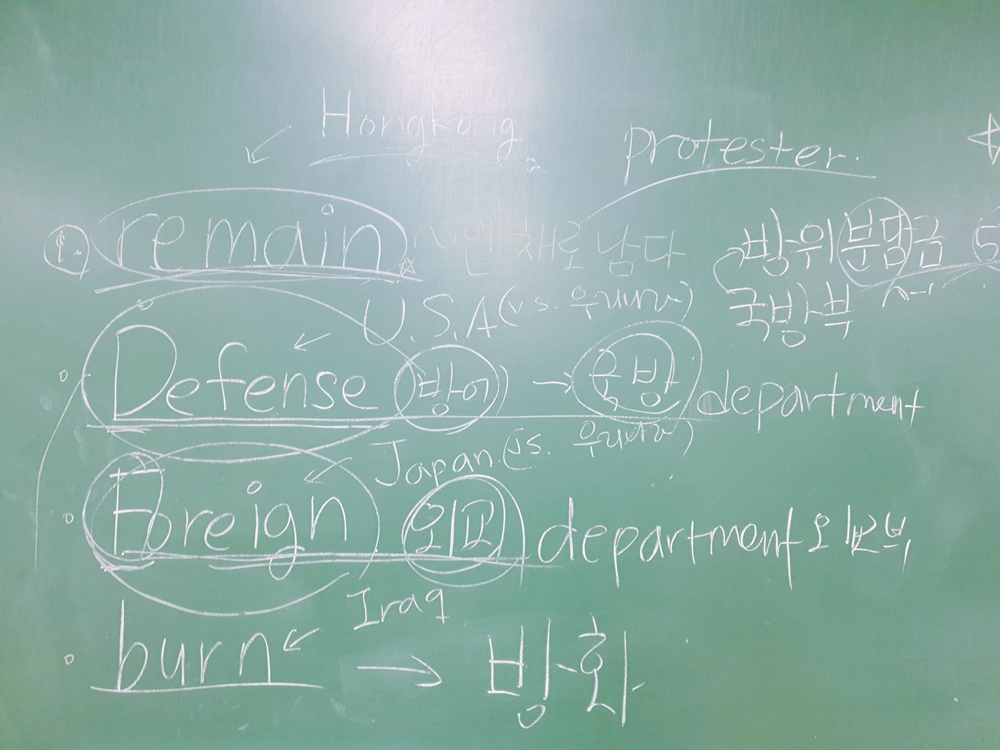 Hongkong protester.
1. remain ~인 채로 남다 방위 분담금 5
U.S.A (vs. 우리나라) 국방부
Defense (방어) → 국방 department
Japan. (vs. 우리나라)
Foreign 외교 department 외교부
Iraq
burn → 방화